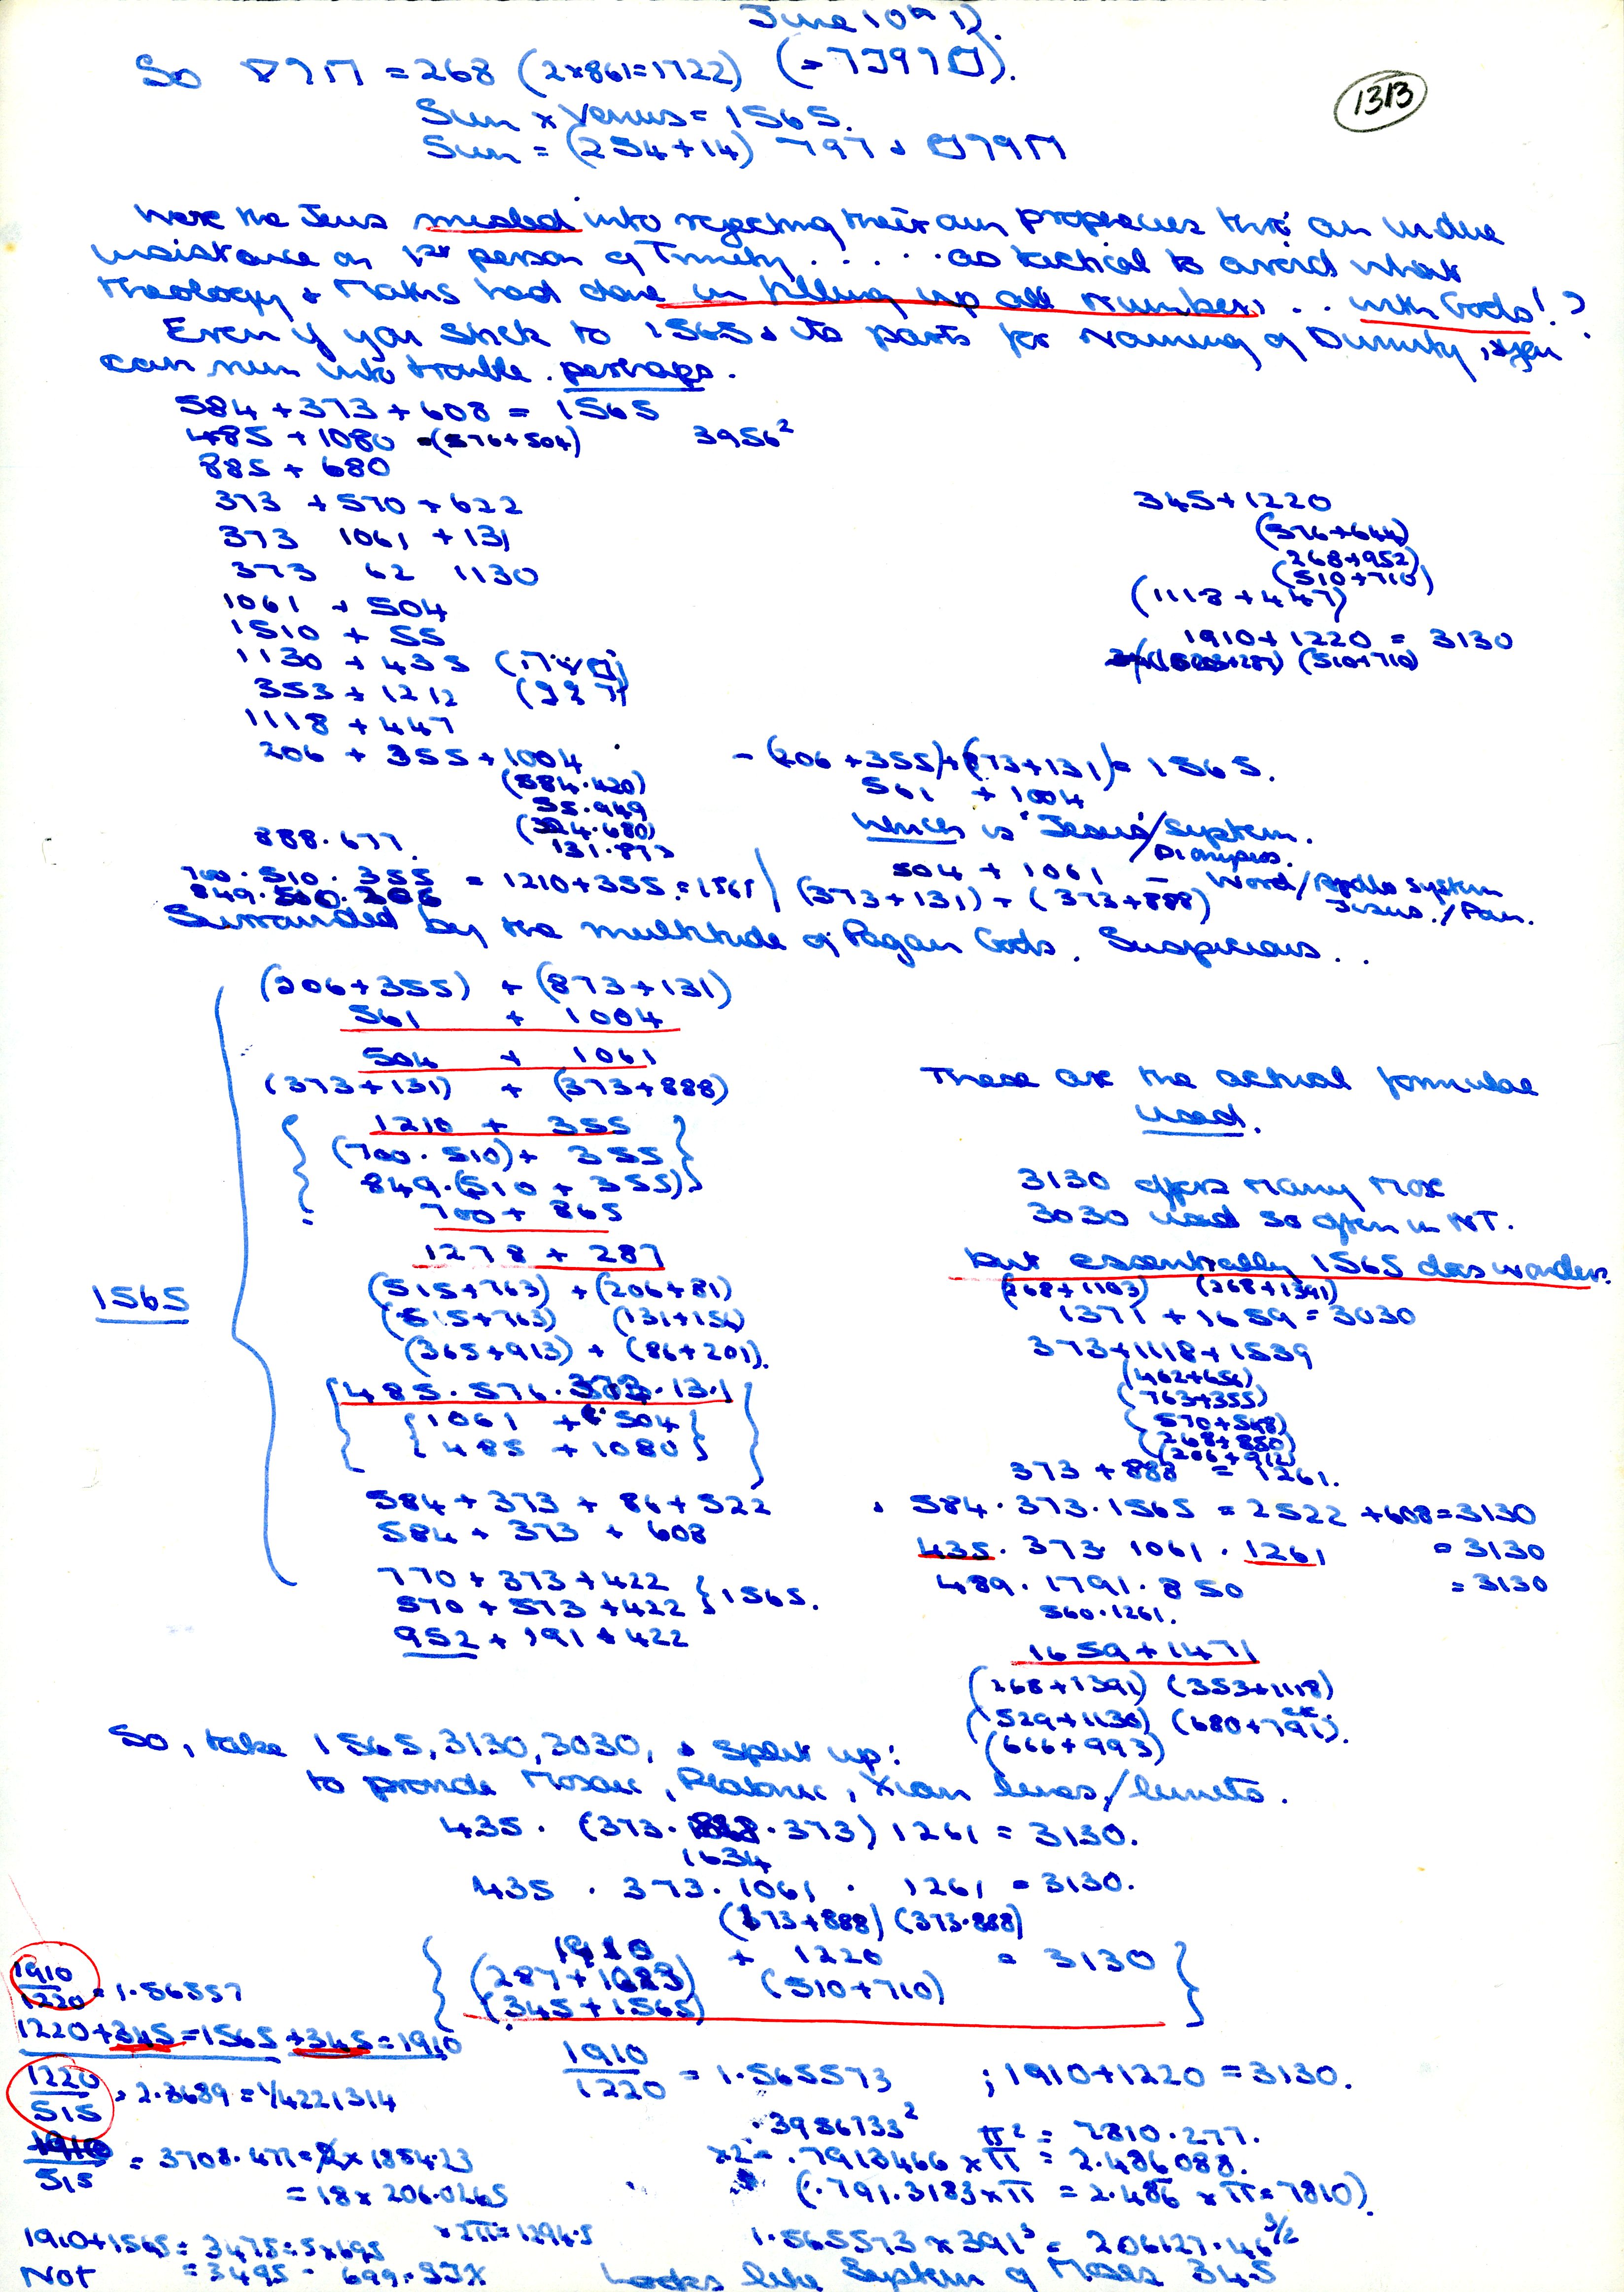 June 10th
So = 268 (2x861=1722)
1313
Sun x Venus = 1565.
Sun = (254+14)
Were the Jews misled into rejecting their own prophecies thro' an undue
insistence on 1st person of Trinity . . . . . as tactical to avoid what
theology + Maths had done in filling up all numbers . . with Gods! ?
Even if you stick to 1565 & its parts for naming of Divinity, you
can run into trouble. perhaps.
584 + 373 + 608 = 1565
485 + 1080 = (576+504) 3956²
885 + 680
373 + 570 + 622
373 1061 + 131
373 62 1130
1061 + 504
1510 + 55
1130 + 435
353 + 1212
1118 + 447
206 + 355 + 1004
(584.420)
55.949
(324.680)
131.873
888.677.
700.510.355 = 1210+355=1565
849.510.206
345+1220
(576+644)
(268+952)
(510+710)
(1118+447)
1910+1220 = 3130
(510+710)
- (206+355)+(873+131)=1565.
561 + 1004
which is 'Jesus'/System.
/Dionysos.
504 + 1061 - Word/Apollo system
(373+131) + (373+888) Jesus./Pan.
Surrounded by the multitude of Pagan Gods. Suspicious . .
1565
(206+355) + (873+131)
561 + 1004
504 + 1061
(373+131) + (373+888)
1210 + 355
(700.510)+ 355
849.(510+355)
700 + 865
1278 + 287
(515+763) + (206+81)
(515+763) (131+156)
(365+913) + (86+201).
485.576.373.131
1061 + 504
485 + 1080
584 + 373 + 86 + 522
584 + 373 + 608
770 + 373 + 422
570 + 573 + 422 } 1565.
952 + 191 + 422
These are the actual formulae
used.
3130 offers many more
3030 used so often in NT.
but essentially 1565 does wonders.
(268+1103) (268+1391)
1371 + 1659 = 3030
373+1118+1539
(462+656)
(763+355)
(570+548)
(268+850)
(206+912)
373 + 888 = 1261.
584.373.1565 = 2522 + 608=3130
435.373.1061.1261 = 3130
489.1791.850 = 3130
560.1261.
1659+1471
(268+1391) (353+1118)
(529+1130) (680+791).
(666+993)
So, take 1565, 3130, 3030, & split up:
to provide Mosaic, Platonic, Xian lines/limits.
435. (373.888.373) 1261 = 3130.
1634
435 . 373.1061 . 1261 = 3130.
(373+888) (373.888)
1910 + 1220 = 3130
(287+1623) (510+710)
(345+1565)
1910/1220 = 1.56557
1220+345=1565+345=1910
1910/1220 = 1.565573 ; 1910+1220 = 3130.
1220/515 = 2.3689 = 1/4221314
.3956733² π² = 7810.277.
1910/515 = 3708.477=2x1854.23
x2=.7913466 x π = 2.486088.
= 18x206.0265
(.791.3183xπ = 2.486 xπ=7810).
x2π=1294.5
1910+1565= 3475=5x695
1.565573 x 391³ = 206127.46 3/2
Not = 3495 - 699.
Looks like System of Moses 345